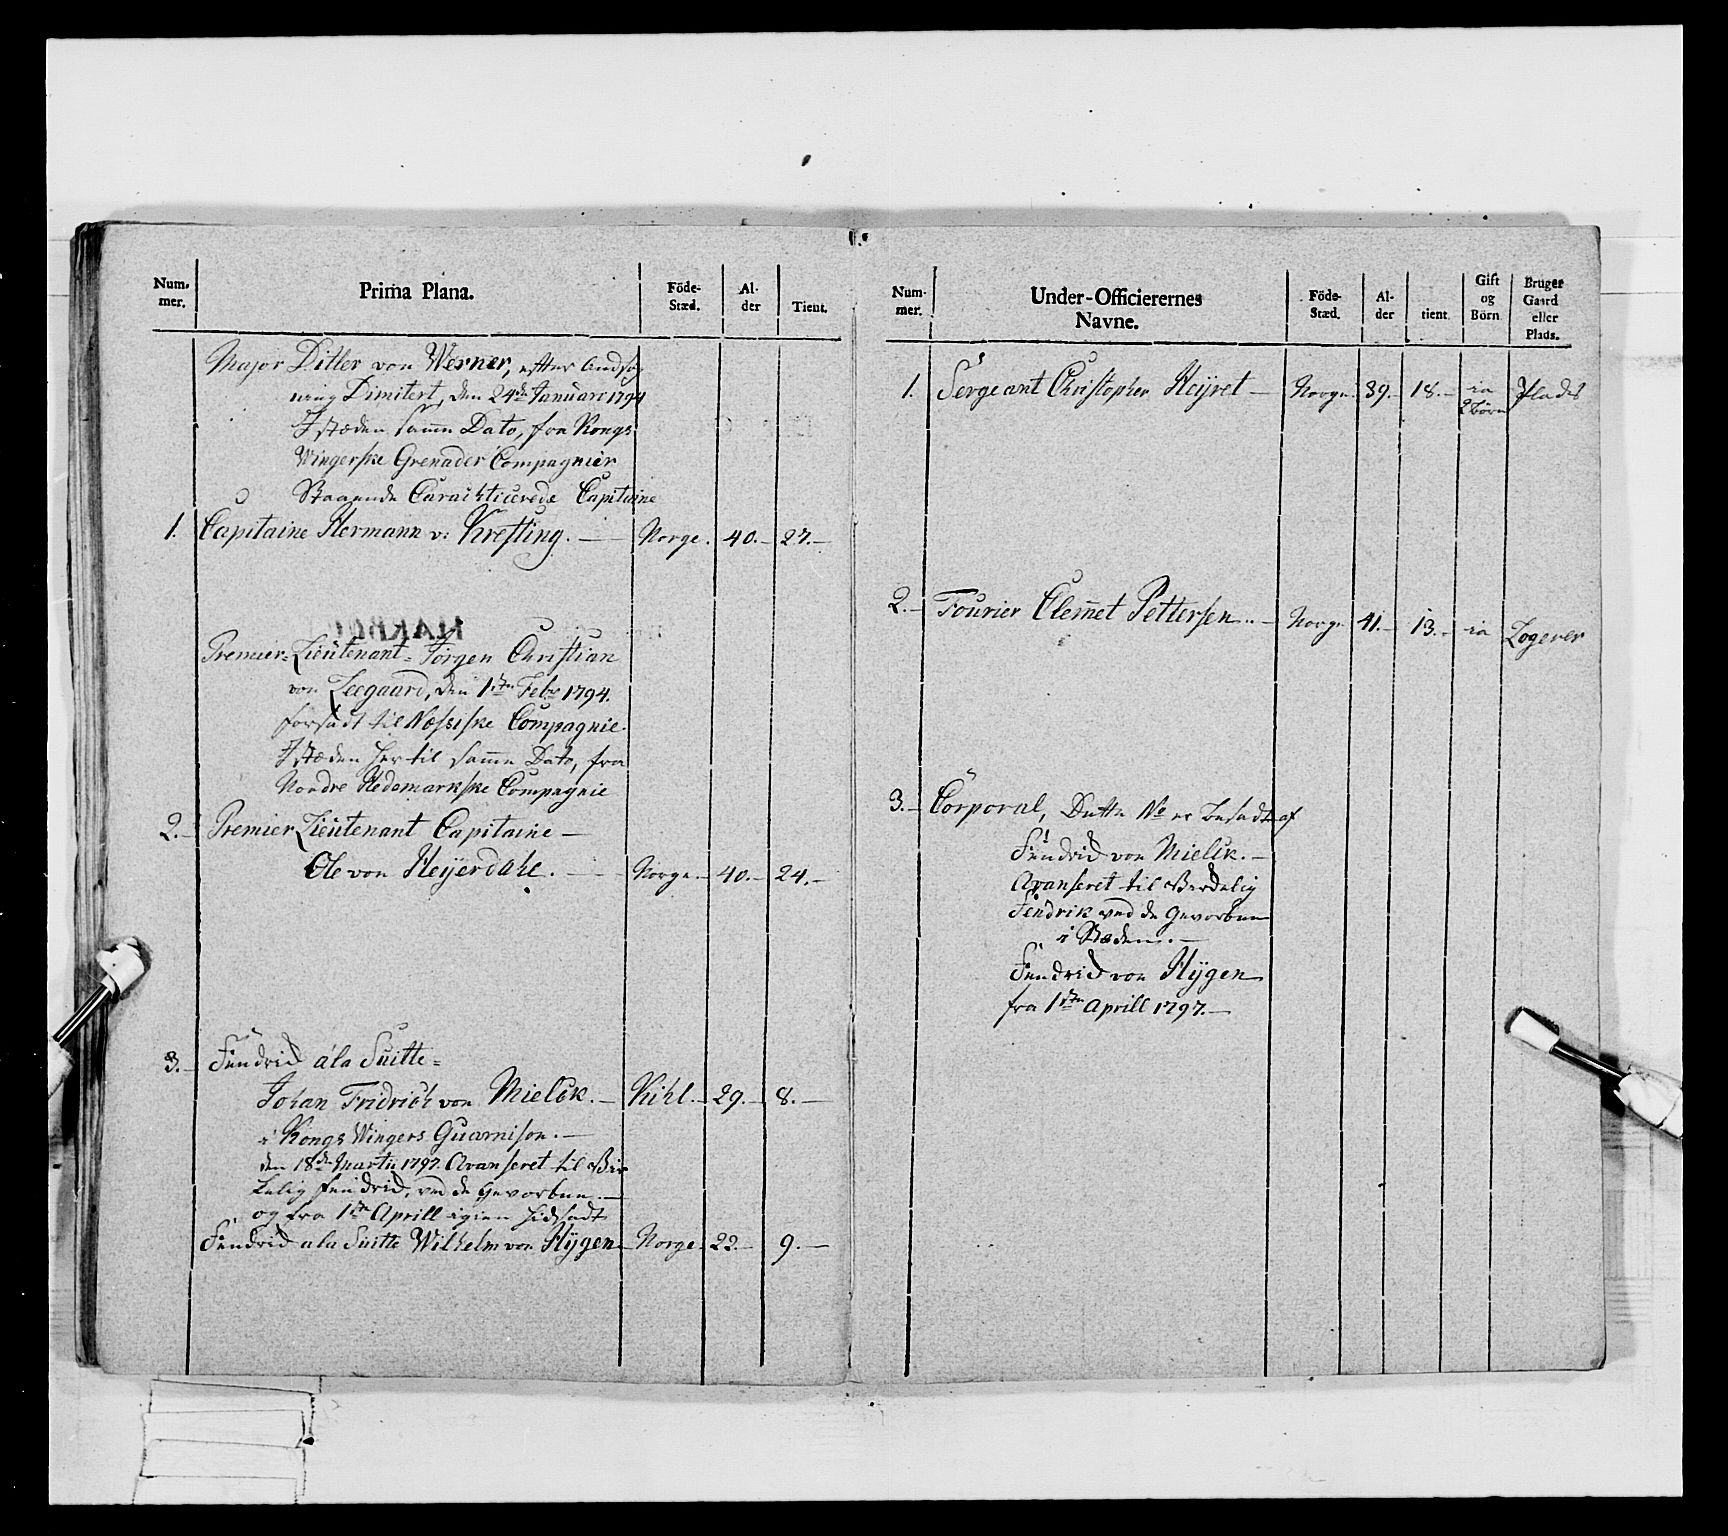 Num-
mer.
Prima Plana.
Föde-
Stæd.
Al-
der
Tient.
Major Ditler von Werner, efter Andsøg
ning Dimitert, den 24de Januari 1794
I stæden samme Dato, fra Kongs
Wingerske Grenader Compagnier
Staaende Carackticerede Capitaine
1. Capitaine Hermann v: Krefting. — Norge. 40. — 27. —
Premier-Lieutenant Jørgen Christian
von Zeegaard, den 1ste Febr 1794.
forsadt til Nessiske Compagnie.
I stæden her til samme Dato, fra
Nordre Hedemarkske Compagnie
2. — Premier Lieutenant Capitaine —
Ole von Heÿerdahl. — Norge. — 40. — 24. —
3. — Fendrid a'la Suitte =
Johan Fridrich von Mielck. — Kihl. — 29. — 8. —
i Kongs Wingers Guarnison. —
den 18de Martii 1797. Avanseret til Vir
kelig Fendrid, ved de Gevorbne. —
og fra 1ste Aprill igien hidsadt
Fendrid a la Suitte Wilhelm von Hÿgen — Norge. 22. — 9. —
Num-
mer.
Under-Officierernes
Navne.
Föde-
Stæd.
Al-
der
tient.
Gift
og
Börn
Bruger
Gaard
eller
Plads.
1. Sergeant Christopher Heÿret — Norge. 39. — 18. — ia Plads
2 Børn
2. — Fourier Clemet Pettersen. — Norge 41. — 13. — ia Logerer
3. — Corporal, Dette No er besadt af
Fendrid von Mielck. —
Avanseret til Virkelig
Fendrik ved de Gevorbne
i Stæden. —
Fendrid von Hÿgen
fra 1ste Aprill 1797. —